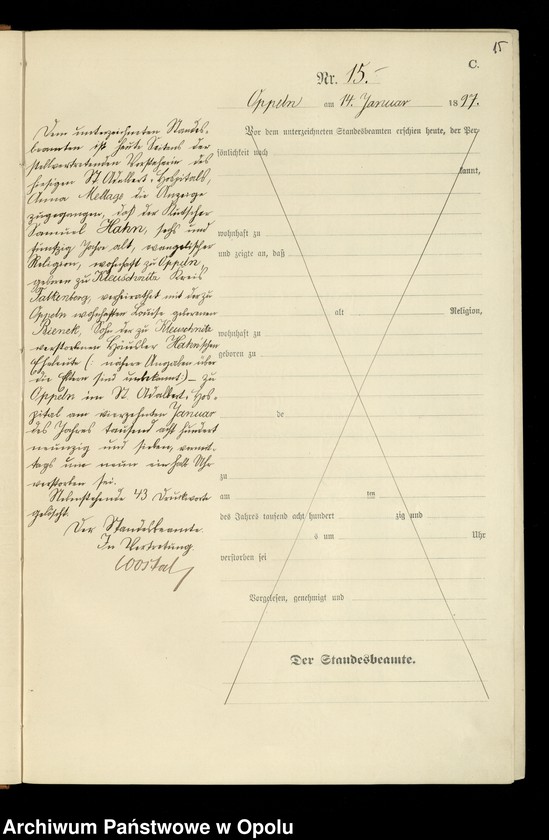 15
C.
Nr. 15.
Oppeln am 14. Januar 1897.
Dem unterzeichneten Standes-
beamten ist heute Seitens der
stellvertretenden Vorsteherin des
hiesigen St. Adalbert-Hospitals,
Anna Mellage die Anzeige
zugegangen, daß der Kutscher
Samuel Hahn, sechs und
fünfzig Jahre alt, evangelischer
Religion, wohnhaft zu Oppeln,
geboren zu Kreis
Falkenberg, verheirathet mit der zu
Oppeln wohnhaften Louise geborenen
Bienek, Sohn der zu
verstorbenen Häusler Hahn'schen
Eheleute (: nähere Angaben über
die Eltern sind unbekannt) – zu
Oppeln im St. Adalbert-Hos-
pital am vierzehnten Januar
des Jahres tausend acht hundert
neunzig und sieben, vormit-
tags um neun ein halb Uhr
verstorben sei.
Nebenstehende 43 Druckworte
gelöscht.
Der Standesbeamte.
In Vertretung
Vor dem unterzeichneten Standesbeamten erschien heute, der Per-
sönlichkeit nach
kannt,
wohnhaft zu
und zeigte an, daß
alt Religion,
wohnhaft zu
geboren zu
de
zu
am ten
des Jahres tausend acht hundert zig und
s um Uhr
verstorben sei
Vorgelesen, genehmigt und
Der Standesbeamte.
Archiwum Państwowe w Opolu